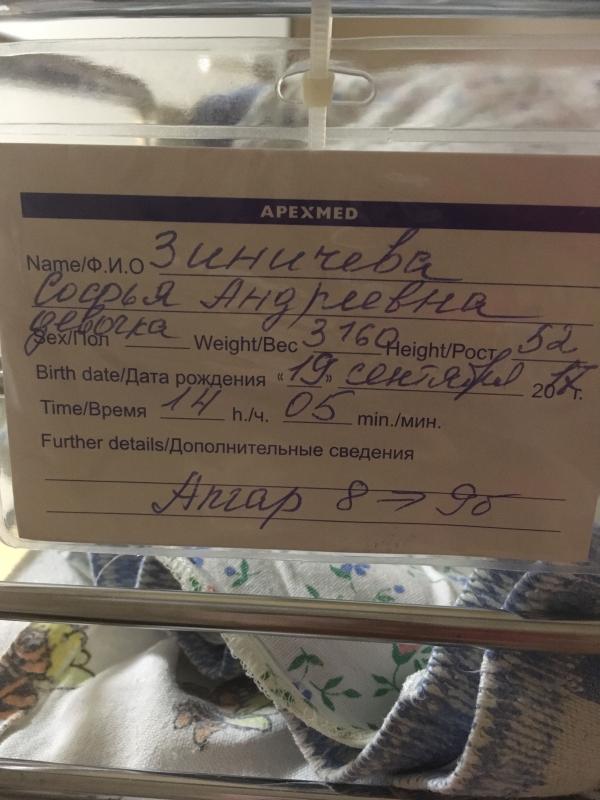 APEXMED
Name/Ф.И.О Зиничева
Софья Андреевна
Sex/Пол девочка Weight/Вес 3160 Height/Рост 52
Birth date/Дата рождения «19» сентября 2017г.
Time/Время 14 h./ч. 05 min./мин.
Further details/Дополнительные сведения
Апгар 8 → 9б